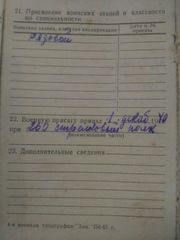 21. Присвоение воинских званий и классности
по специальности
Воинское звание, классная квалификация
Дата и № приказа
Рядовой
22. Военную присягу принял 1 декаб 19
при
(наименование части)
23. Дополнительные сведения
4-я военная типография Зак.